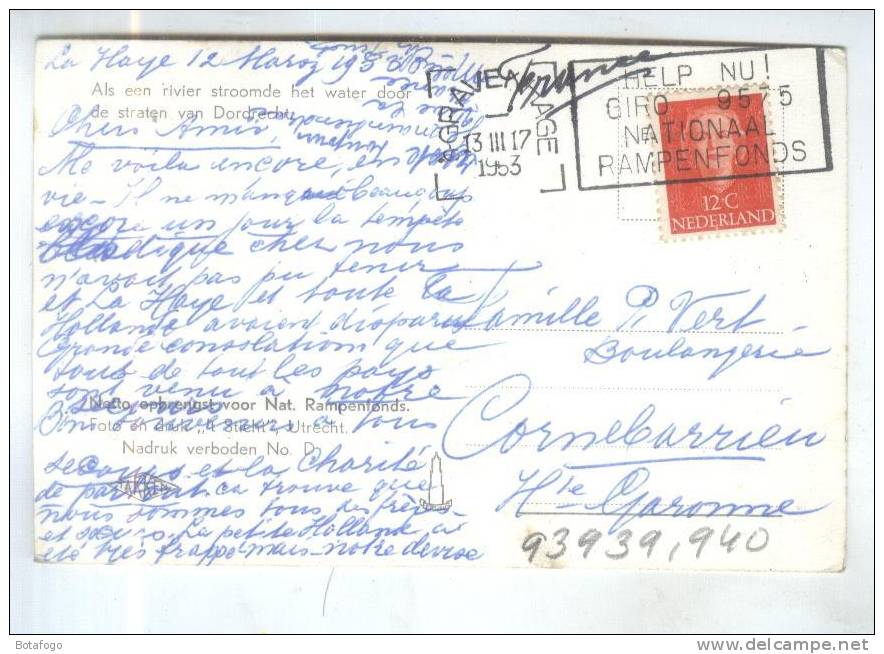 La Haye 12 Mars 1953
Als een rivier stroomde het water door
de straten van Dordrecht.
Chers Amis,
Me voila encore, en
vie - Il ne manquait beaucoup
encore un jour la tempête
dique cher nous
n'avait pas pu tenir
et La Haye et toute la
Hollande avaient disparu
Grande consolation que
tous de tout les pays
sont venu à notre
secours
Netto opbrengst voor Nat. Rampenfonds.
Foto en druk „'t Sticht", Utrecht.
Nadruk verboden No. D.
à tous
secours et la Charité
de partout ca trouve que
nous sommes tous des frères
et sœurs. La petite Hollande a
été très frappé mais notre devise
TAKKEN
's-GRAVENHAGE
13 III 17
1953
HELP NU!
GIRO 9575
NATIONAAL
RAMPENFONDS
France
12 C
NEDERLAND
Famille P. Vert
Boulangerie
Cornebarrieu
Hte Garonne
93939,940
Botafogo
www.delcampe.net